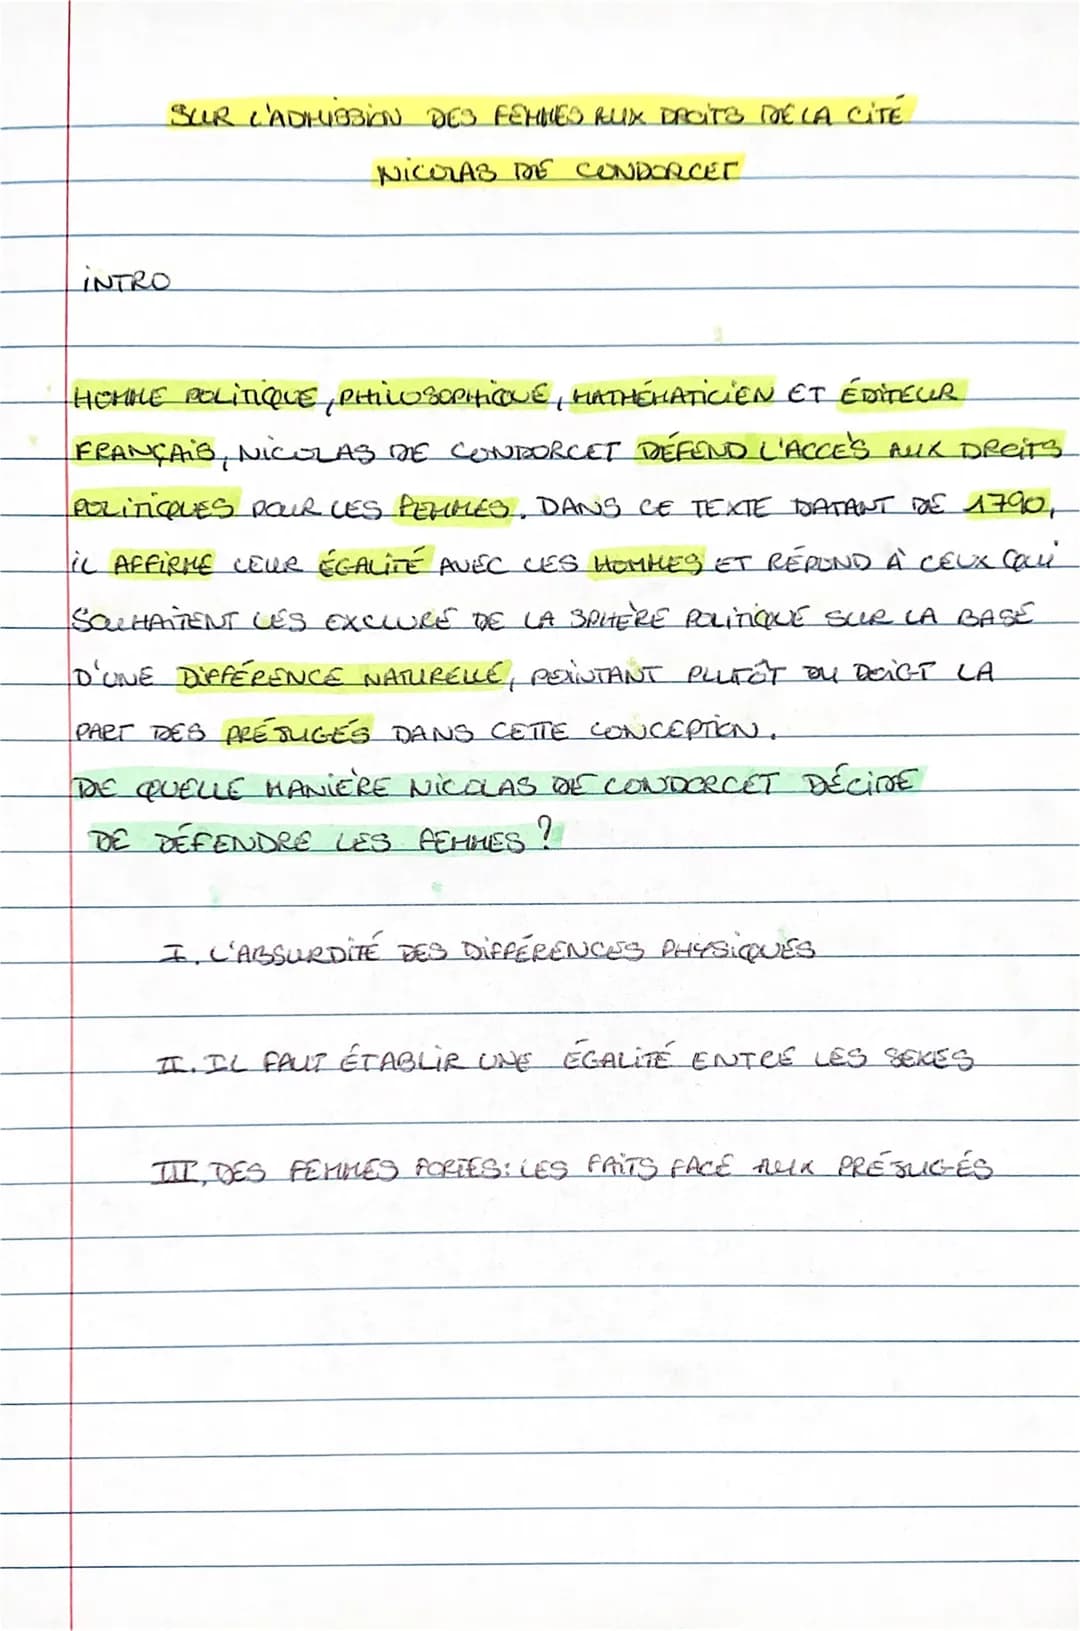 SUR L'ADMISSION DES FEMMES AUX DROITS DE LA CITÉ
NICOLAS DE CONDORCET
INTRO
HOMME POLITIQUE, PHILOSOPHIQUE, MATHÉMATICIEN ET ÉDITEUR
FRANÇAIS, NICOLAS DE CONDORCET DÉFEND L'ACCÈS AUX DROITS
POLITIQUES POUR LES FEMMES. DANS CE TEXTE DATANT DE 1790,
IL AFFIRME LEUR ÉGALITÉ AVEC LES HOMMES ET RÉPOND À CEUX QUI
SOUHAITENT LES EXCLURE DE LA SPHÈRE POLITIQUE SUR LA BASE
D'UNE DIFFÉRENCE NATURELLE, POINTANT PLUTÔT DU DOIGT LA
PART DES PRÉJUGÉS DANS CETTE CONCEPTION.
DE QUELLE MANIÈRE NICOLAS DE CONDORCET DÉCIDE
DE DÉFENDRE LES FEMMES ?
I. L'ABSURDITÉ DES DIFFÉRENCES PHYSIQUES
II. IL FAUT ÉTABLIR UNE ÉGALITÉ ENTRE LES SEXES
III, DES FEMMES FORTES: LES FAITS FACE AUX PRÉJUGÉS